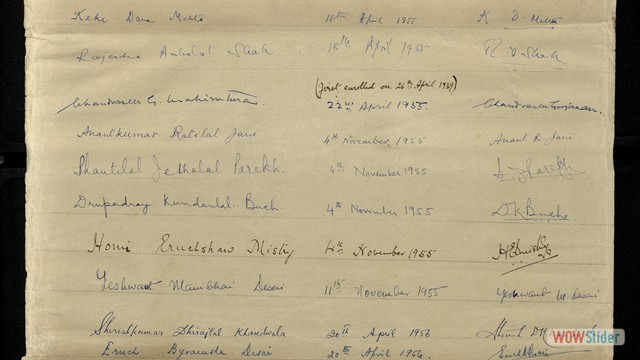 Keki Dara Mehta 18th April 1955 K. D. Mehta
Rajendra Ambalal Shah 18th April 1955 R A Shah
(first enrolled on 26th April 1939)
22nd April 1955
Anantkumar Ratilal Jani 4th November, 1955 Anant R. Jani
Shantilal Jethalal Parekh. 4th November 1955 Parekh
Drupadray Kundanlal Buch 4th November 1955 D K Buch
Homi Eruchshaw Mistry 4th November 1955 H E Mistry
Yeshwant Manibhai Desai 11th November 1955 Yeshwant M. Desai
Shireshkumar Dhirajlal Khandwala 20th April 1956
Eruch Byramsha Desai 20th April 1956
WOWSlider